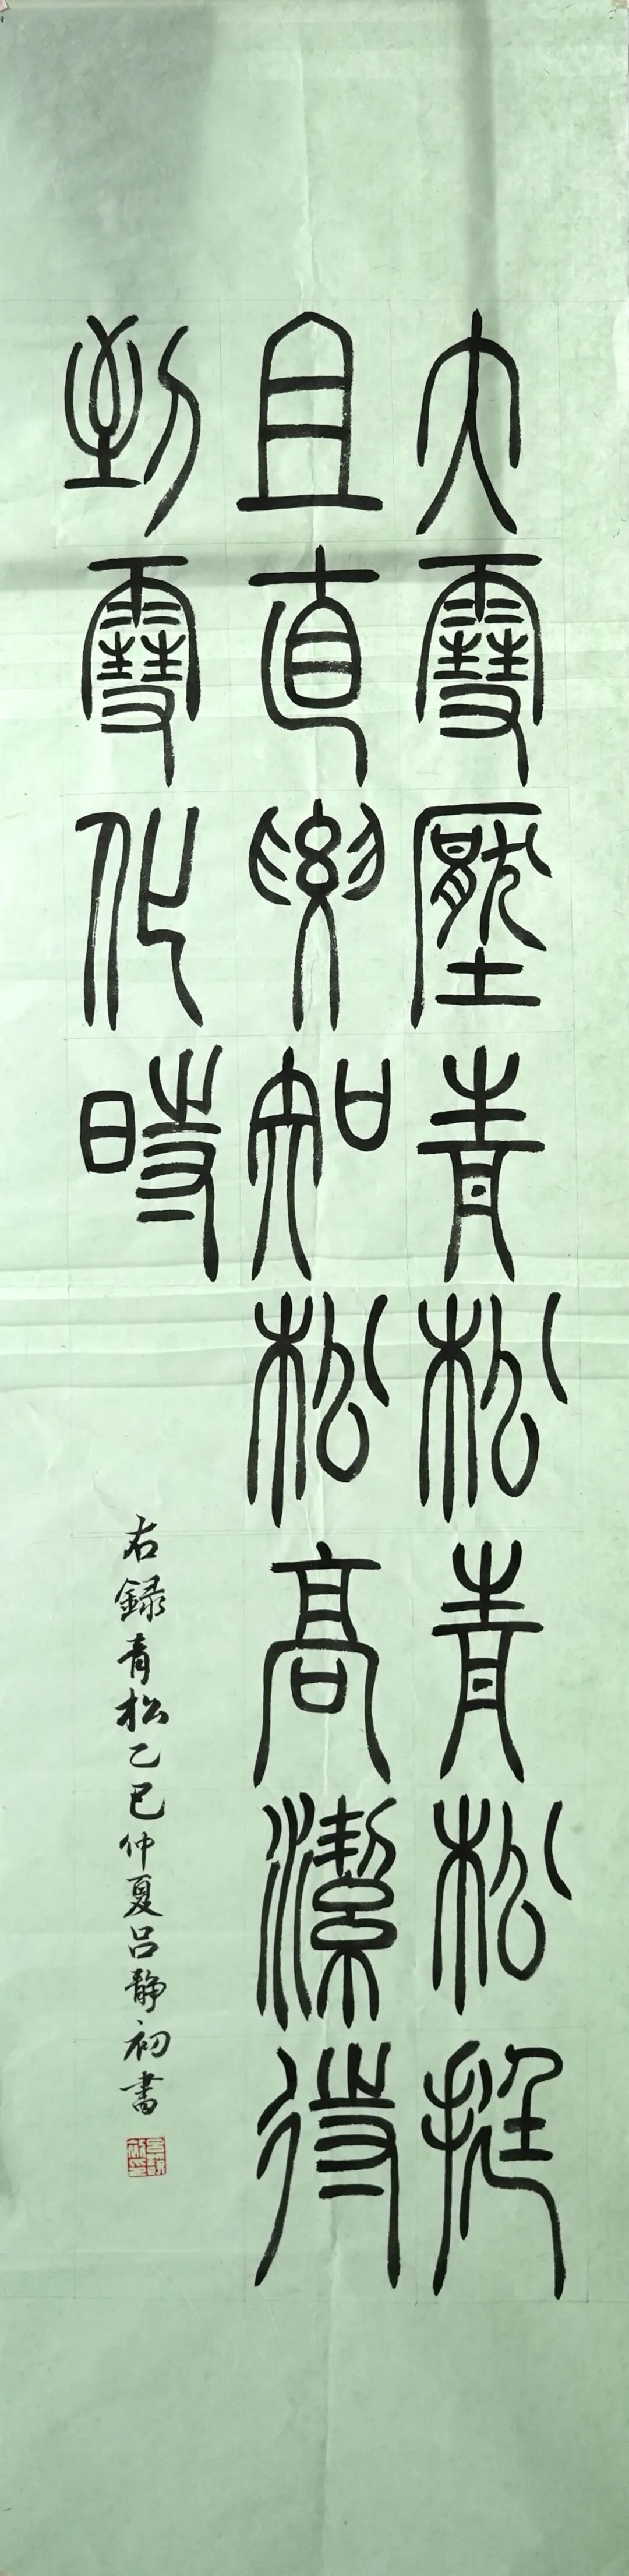 大雪壓青松青松挺
且直要知松高潔待
到雪化時
右録青松乙巳仲夏吕静初書